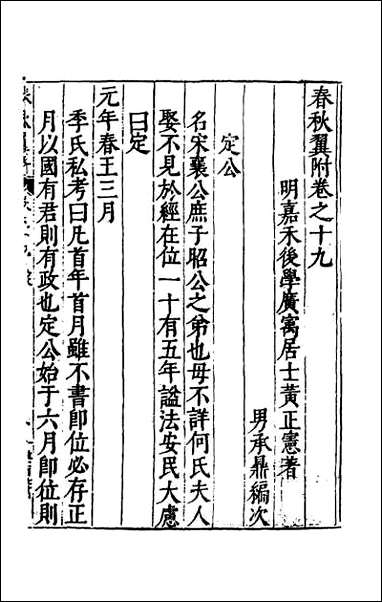 春秋翼附卷之十九
明嘉禾後學廣寓居士黃正憲著
男承鼎編次
定公
名宋襄公庶子昭公之弟也毋不詳何氏夫人
娶不見於經在位一十有五年謚法安民大慮
曰定
元年春王三月
季氏私考曰凡首年首月雖不書卽位必存正
月以國有君則有政也定公始于六月卽位則